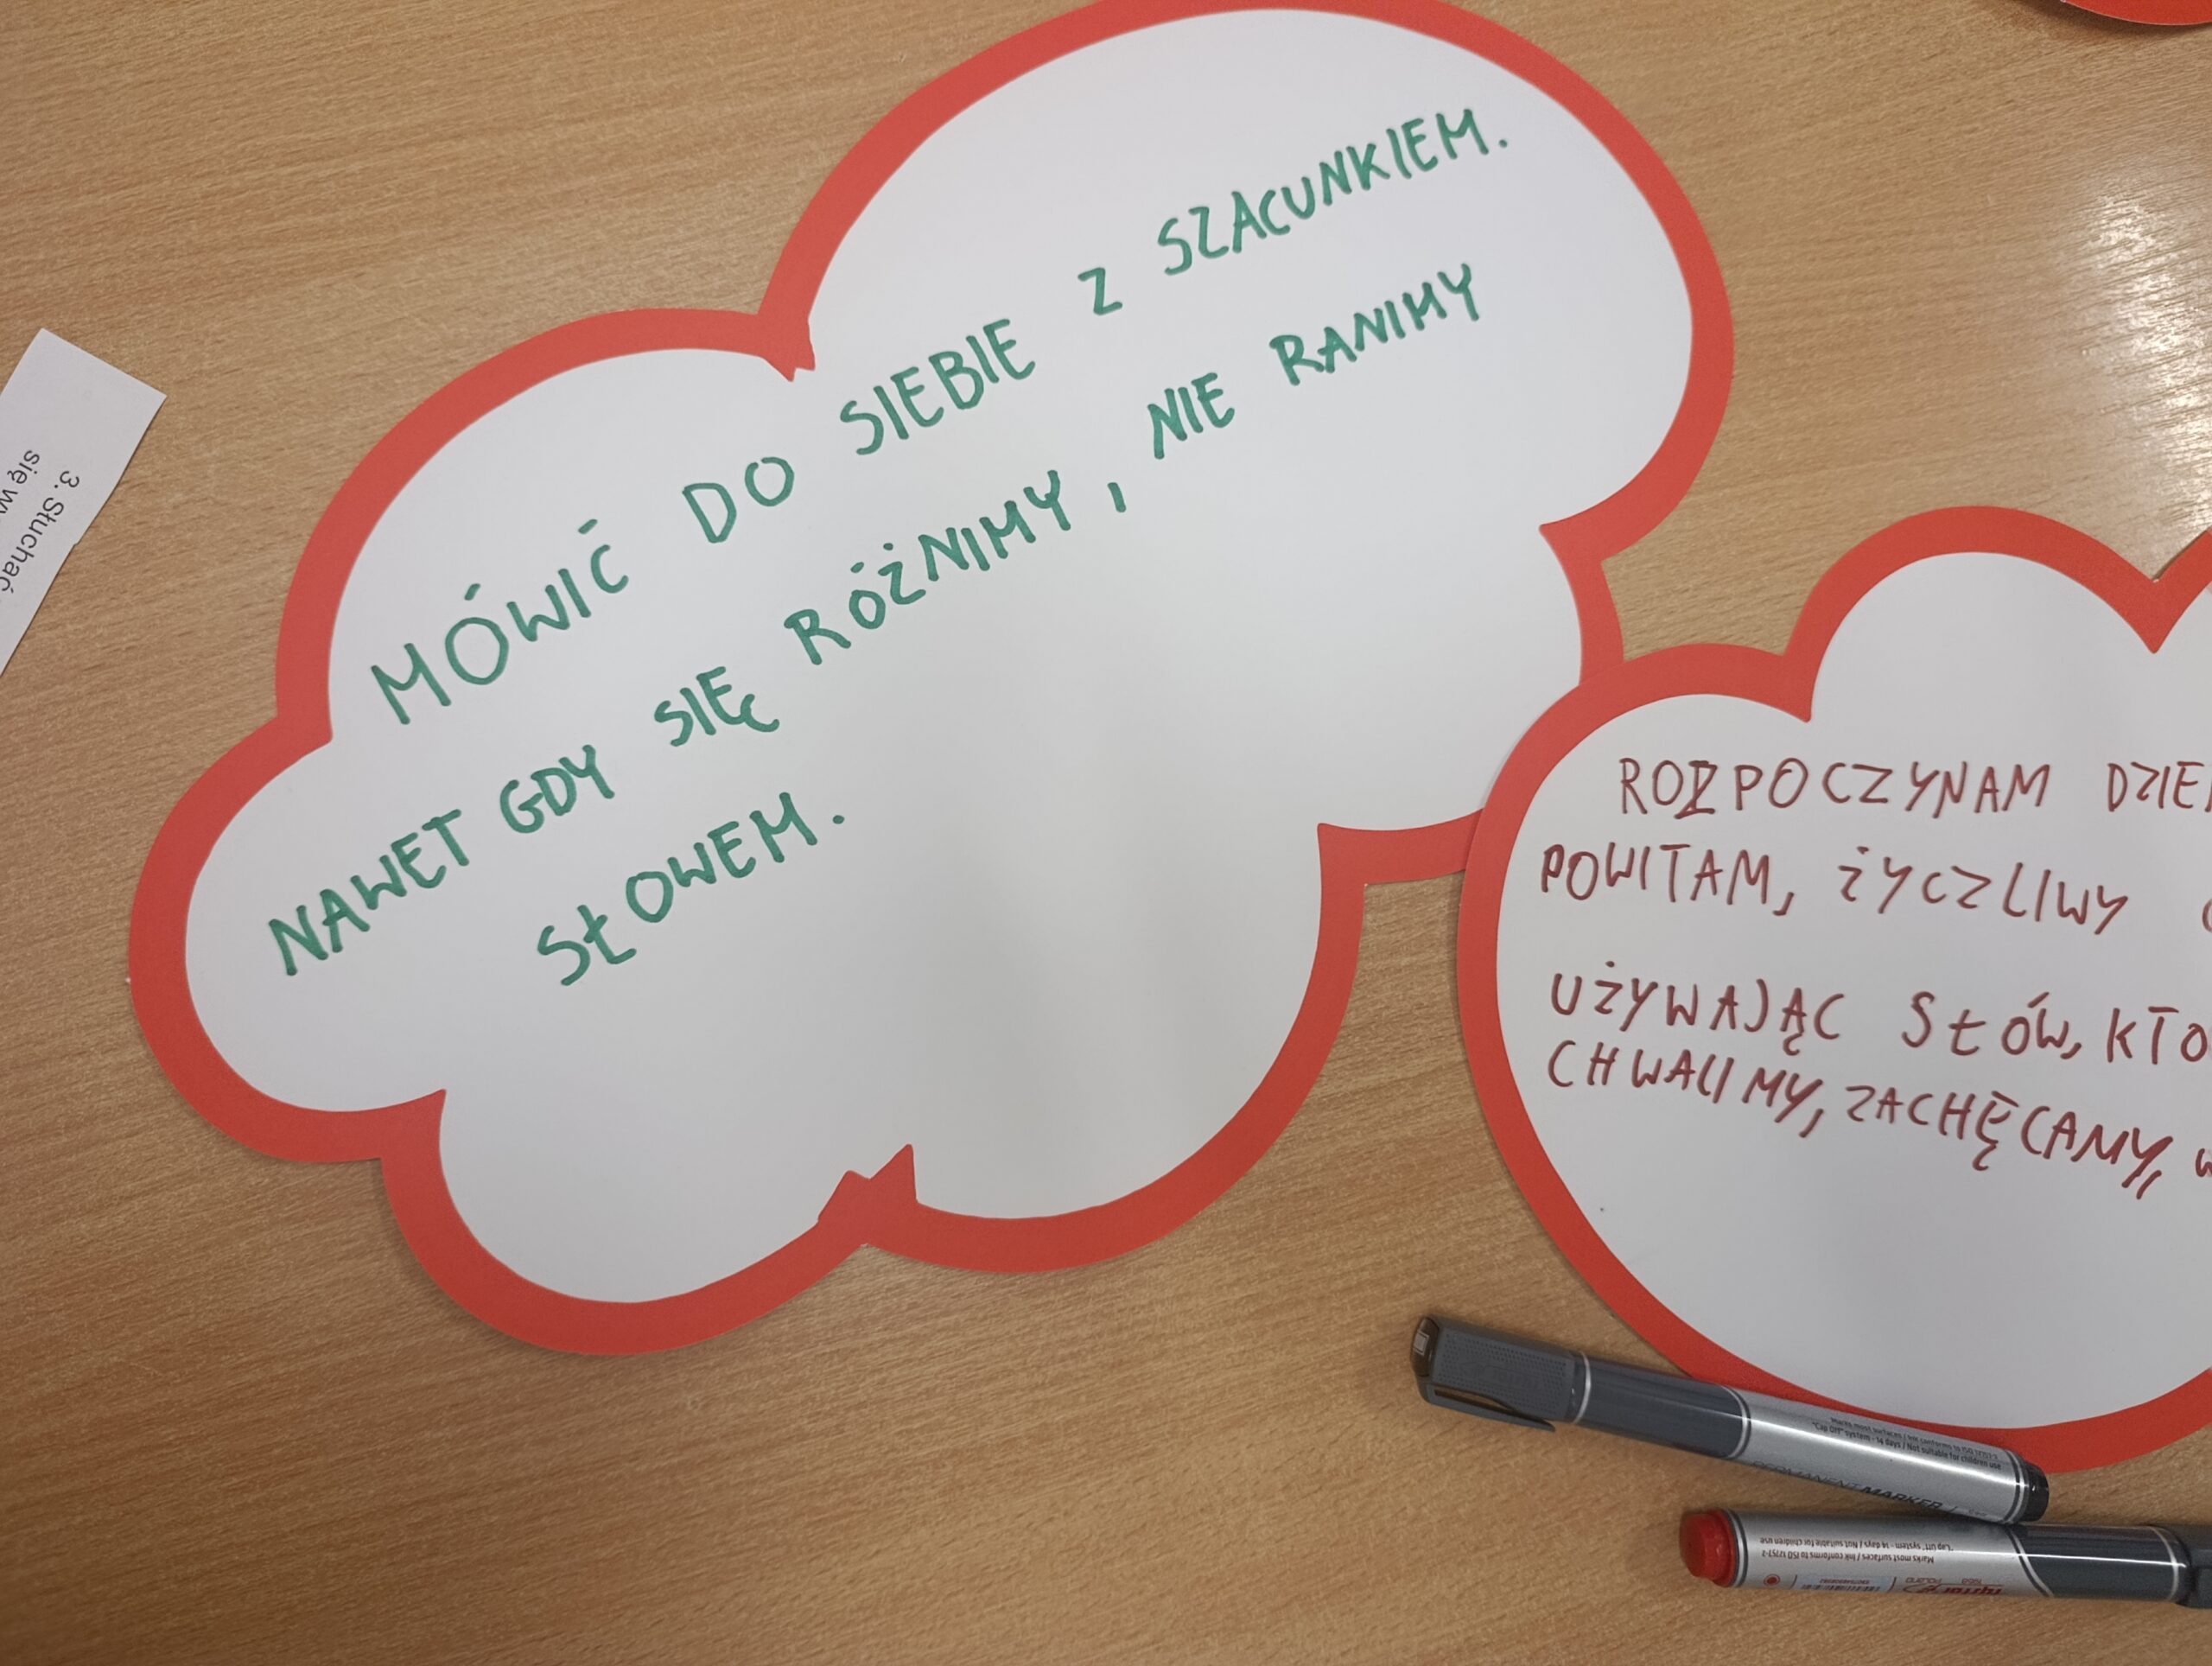 MÓWIĆ DO SIEBIE Z SZACUNKIEM.
NAWET GDY SIĘ RÓŻNIMY, NIE RANIMY
SŁOWEM.
ROZPOCZYNAM
POWITAM, ŻYCZLIWY
UŻYWAJĄC SŁÓW,
CHWALIMY, ZACHĘCAMY,
3. Słuchać
się
Marks most surfaces / Ink conforms to ISO 12757-2
"Cap Off" system - 14 days / Not suitable for children use
PERMANENT MARKER
Marks most surfaces / Ink conforms to ISO 12757-2
"Cap Off" system - 14 days / Not suitable for children use